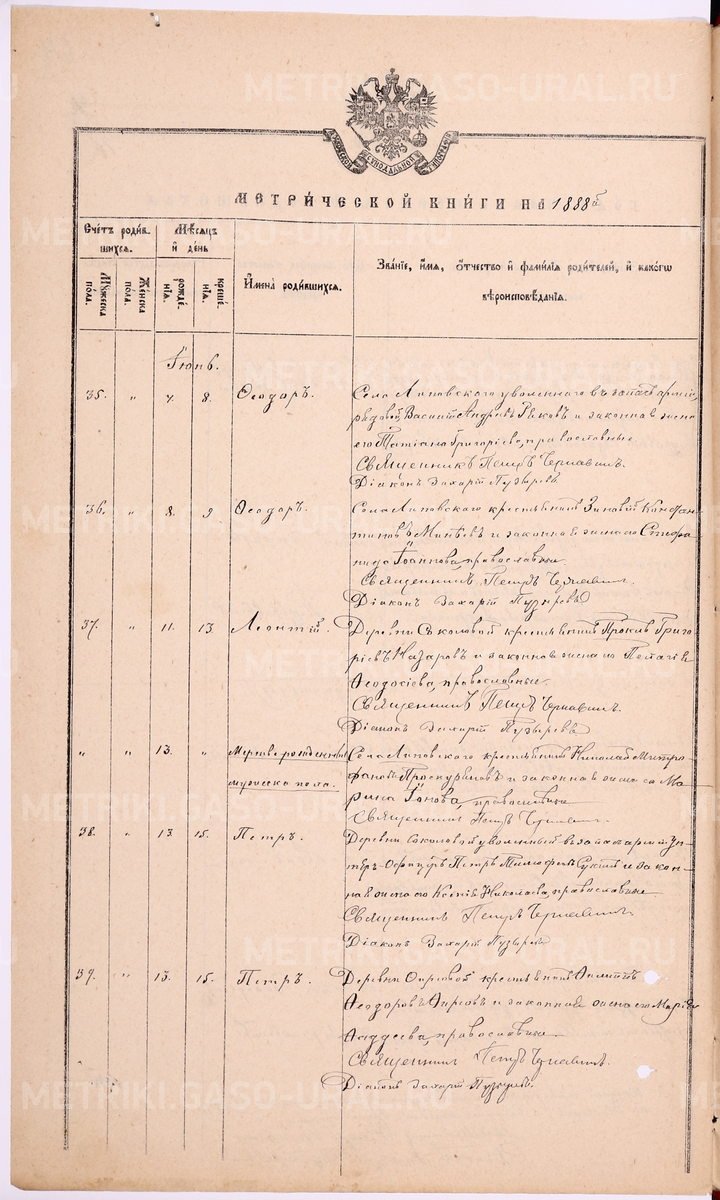 МЕТРИ́ЧЕСКОЙ КНИ́ГИ НА 1888 г.
Сче́тъ роди́в-
шихся.
Мѣ́сяцъ
и́ де́нь
Мꙋ́жеска
по́ла.
Же́нска
по́ла.
рожде́-
нїѧ.
креще́-
нїѧ.
И́мена роди́вшихся.
Зва́нїе, и́мя, о́тчество и́ фами́лїя роди́телей, и́ како́гѡ
вѣроисповѣ́данїя.
Іюнь.
35. " 7. 8. Ѳеодоръ. Села Липовскаго уволеннаго въ запасъ арміи
рядовой Василій Андреевъ и законная жена
его Татіана Григоріева, православные
Священникъ Петръ Чернавинъ.
Діаконъ Захарій Пузыревъ
36. " 8. 9 Ѳеодоръ. Села Липовскаго крестьянинъ Зиновій Констан-
тиновъ Минѣевъ и законная жена его Стефа-
нида Іоаннова, православные
Священникъ Петръ Чернавинъ.
Діаконъ Захарій Пузыревъ
37. " 11. 13 Леонтій. Деревни Соколовой крестьянинъ Проклъ Григо-
ріевъ Назаровъ и законная жена его Пелагія
Ѳеодосіева, православные
Священникъ Петръ Чернавинъ.
Діаконъ Захарій Пузыревъ
" " 13. " Мертворожденный Села Липовскаго крестьянинъ Николай Митро-
мужеска пола. фановъ Проскурниковъ и законная жена его Ма-
рина Іонова, православные
Священникъ Петръ Чернавинъ.
38. " 13 15. Петръ. Деревни Соколовой уволенный въ запасъ арміи Ун-
теръ-Офицеръ Петръ Тимофеевъ и закон-
ная жена его Ксенія Николаева, православные
Священникъ Петръ Чернавинъ.
Діаконъ Захарій Пузыревъ
39. " 13. 15. Петръ. Деревни Фирсовой крестьянинъ
Ѳеодоровъ Фирсовъ и законная жена его Марія
Ѳаддеева, православные
Священникъ Петръ Чернавинъ.
Діаконъ Захарій Пузыревъ.
METRIKI.GASO-URAL.RU